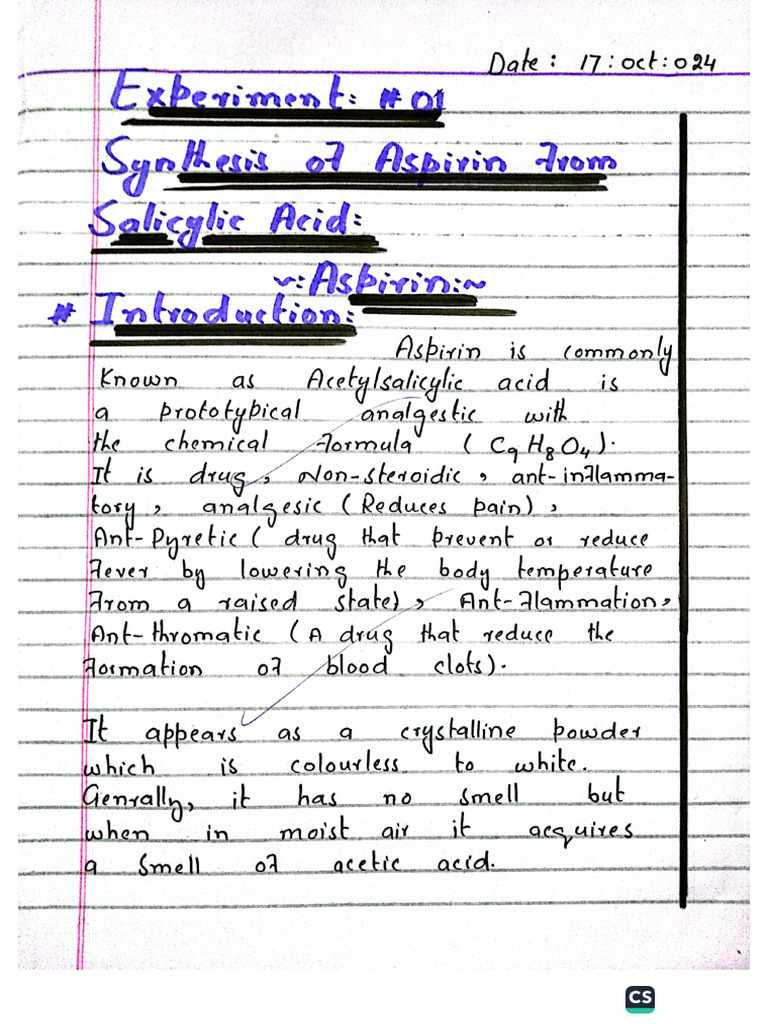 Date: 17:oct:024
Experiment: # 01
Synthesis of Aspirin From
Salicylic Acid:
~:Aspirin:~
# Introduction:
Aspirin is commonly
Known as Acetylsalicylic acid is
a prototypical analgestic with
the chemical Formula (C9H8O4).
It is drug, Non-steroidic, ant-inflamma-
tory, analgesic (Reduces pain),
Ant-Pyretic ( drug that prevent or reduce
Fever by lowering the body temperature
From a raised state), Ant-Flammation,
Ant-thromatic (A drug that reduce the
Formation of blood clots).
It appears as a crystalline powder
which is colourless to white.
Genrally, it has no smell but
when in moist air it acquires
a smell of acetic acid.
CS